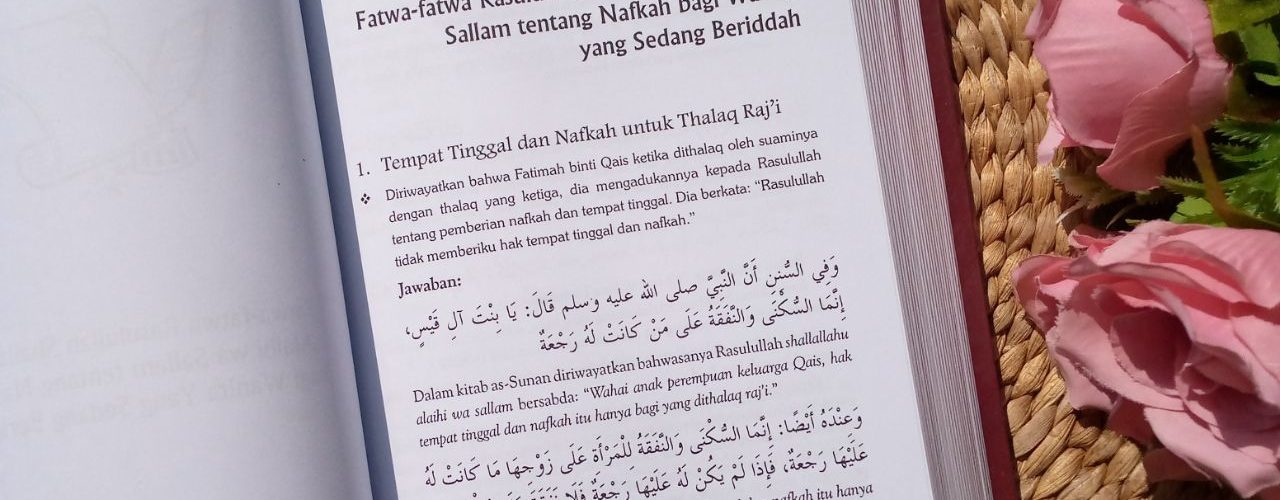 Fatwa-fatwa
Sallam tentang Nafkah bagi
yang Sedang Beriddah
1. Tempat Tinggal dan Nafkah untuk Thalaq Raj'i
❖ Diriwayatkan bahwa Fatimah binti Qais ketika dithalaq oleh suaminya
dengan thalaq yang ketiga, dia mengadukannya kepada Rasulullah
tentang pemberian nafkah dan tempat tinggal. Dia berkata: “Rasulullah
tidak memberiku hak tempat tinggal dan nafkah.”
Jawaban:
وَفِي السُّنَنِ أَنَّ النَّبِيَّ صلى الله عليه وسلم قَالَ: يَا بِنْتَ آلِ قَيْسٍ،
إِنَّمَا السُّكْنَى وَالنَّفَقَةُ عَلَى مَنْ كَانَتْ لَهُ رَجْعَةٌ
Dalam kitab as-Sunan diriwayatkan bahwasanya Rasulullah shallallahu
alaihi wa sallam bersabda: “Wahai anak perempuan keluarga Qais, hak
tempat tinggal dan nafkah itu hanya bagi yang dithalaq raj'i.”
وَعِنْدَهُ أَيْضًا: إِنَّمَا السُّكْنَى وَالنَّفَقَةُ لِلْمَرْأَةِ عَلَى زَوْجِهَا مَا كَانَتْ لَهُ
عَلَيْهَا رَجْعَةٌ، فَإِذَا لَمْ يَكُنْ لَهُ عَلَيْهَا رَجْعَةٌ فَلَا نَفَقَةَ
nafkah itu hanya